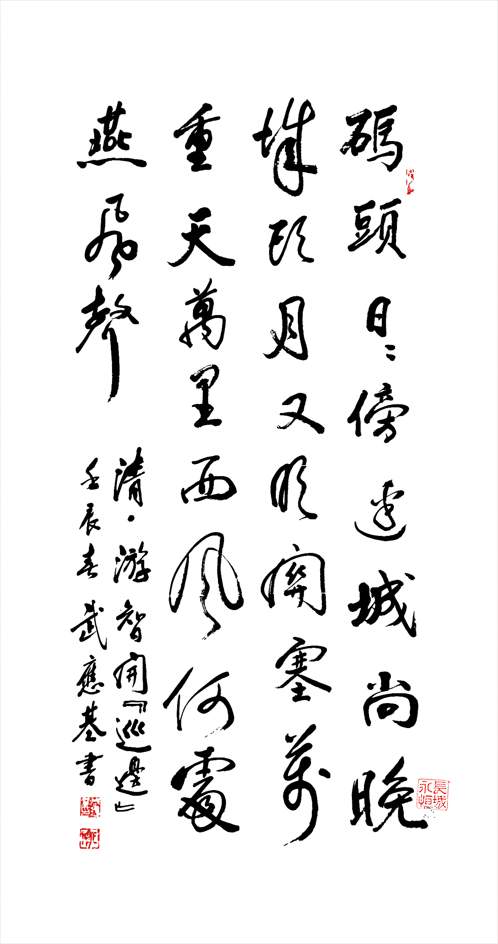 碼頭日〻傍邊城尚晚
城頭月又明關塞萬
重天萬里西風何處
燕風聲
清·游智開『巡邊』
壬辰春 武應基書
長城永恒